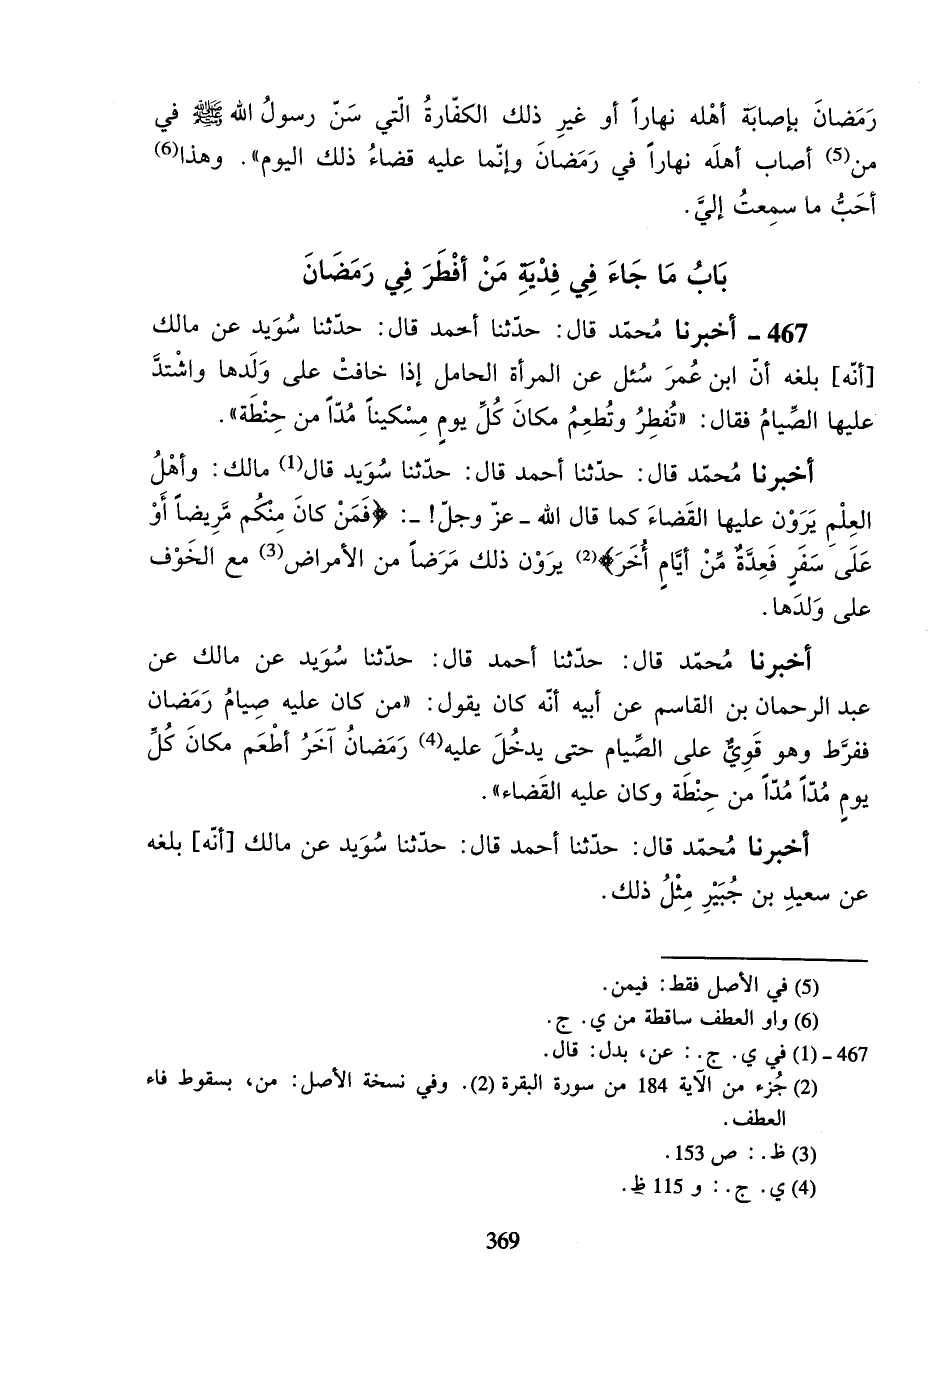 رَمَضانَ بإصابَة أهْله نهاراً أو غيرِ ذلك الكفّارةُ الّتي سَنّ رسولُ الله ﷺ في
من(5) أصاب أهلَه نهاراً في رَمَضانَ وإنّما عليه قضاءُ ذلك اليوم». وهذا(6)
أحَبُّ ما سمِعتُ إليَّ.
بَابُ مَا جَاءَ فِي فِدْيَةِ مَنْ أفْطَرَ فِي رَمَضَانَ
467 - أخبرنا مُحمّد قال: حدّثنا أحمد قال: حدّثنا سُوَيد عن مالك
[أنّه] بلغه أنّ ابن عُمرَ سُئل عن المرأة الحامل إذا خافتْ على وَلَدها واشْتدَّ
عليها الصِّيامُ فقال: «تُفطِرُ وتُطعِمُ مكانَ كُلِّ يومٍ مِسْكيناً مُدّاً من حِنْطَة».
أخبرنا مُحمّد قال: حدّثنا أحمد قال: حدّثنا سُوَيد قال(1) مالك: وأهْلُ
العِلْمِ يَرَوْن عليها القَضاءَ كما قال الله - عزّ وجلّ! -: ﴿فَمَنْ كانَ مِنْكُم مَّرِيضاً أَوْ
عَلَى سَفَرٍ فَعِدَّةٌ مِّنْ أيَّامٍ أُخَرَ﴾(2) يرَوْن ذلك مَرَضاً من الأمراض(3) مع الخَوْف
على وَلدَها.
أخبرنا مُحمّد قال: حدّثنا أحمد قال: حدّثنا سُوَيد عن مالك عن
عبد الرحمان بن القاسم عن أبيه أنّه كان يقول: «من كان عليه صِيامُ رَمَضان
ففرَّط وهو قَوِيٌّ على الصِّيام حتى يدخُلَ عليه(4) رَمَضانُ آخَرُ أطْعَم مكانَ كُلِّ
يومٍ مُدّاً مُدّاً من حِنْطَة وكان عليه القَضاء».
أخبرنا مُحمّد قال: حدّثنا أحمد قال: حدّثنا سُوَيد عن مالك [أنّه] بلغه
عن سعيدِ بن جُبَيْرٍ مِثْلُ ذلك.
(5) في الأصل فقط: فيمن.
(6) واو العطف ساقطة من ي. ج.
467 - (1) في ي. ج.: عن، بدل: قال.
(2) جُزء من الآية 184 من سورة البقرة (2). وفي نسخة الأصل: من، بسقوط فاء
العطف.
(3) ظ.: ص 153.
(4) ي. ج.: و 115 ظ.
369